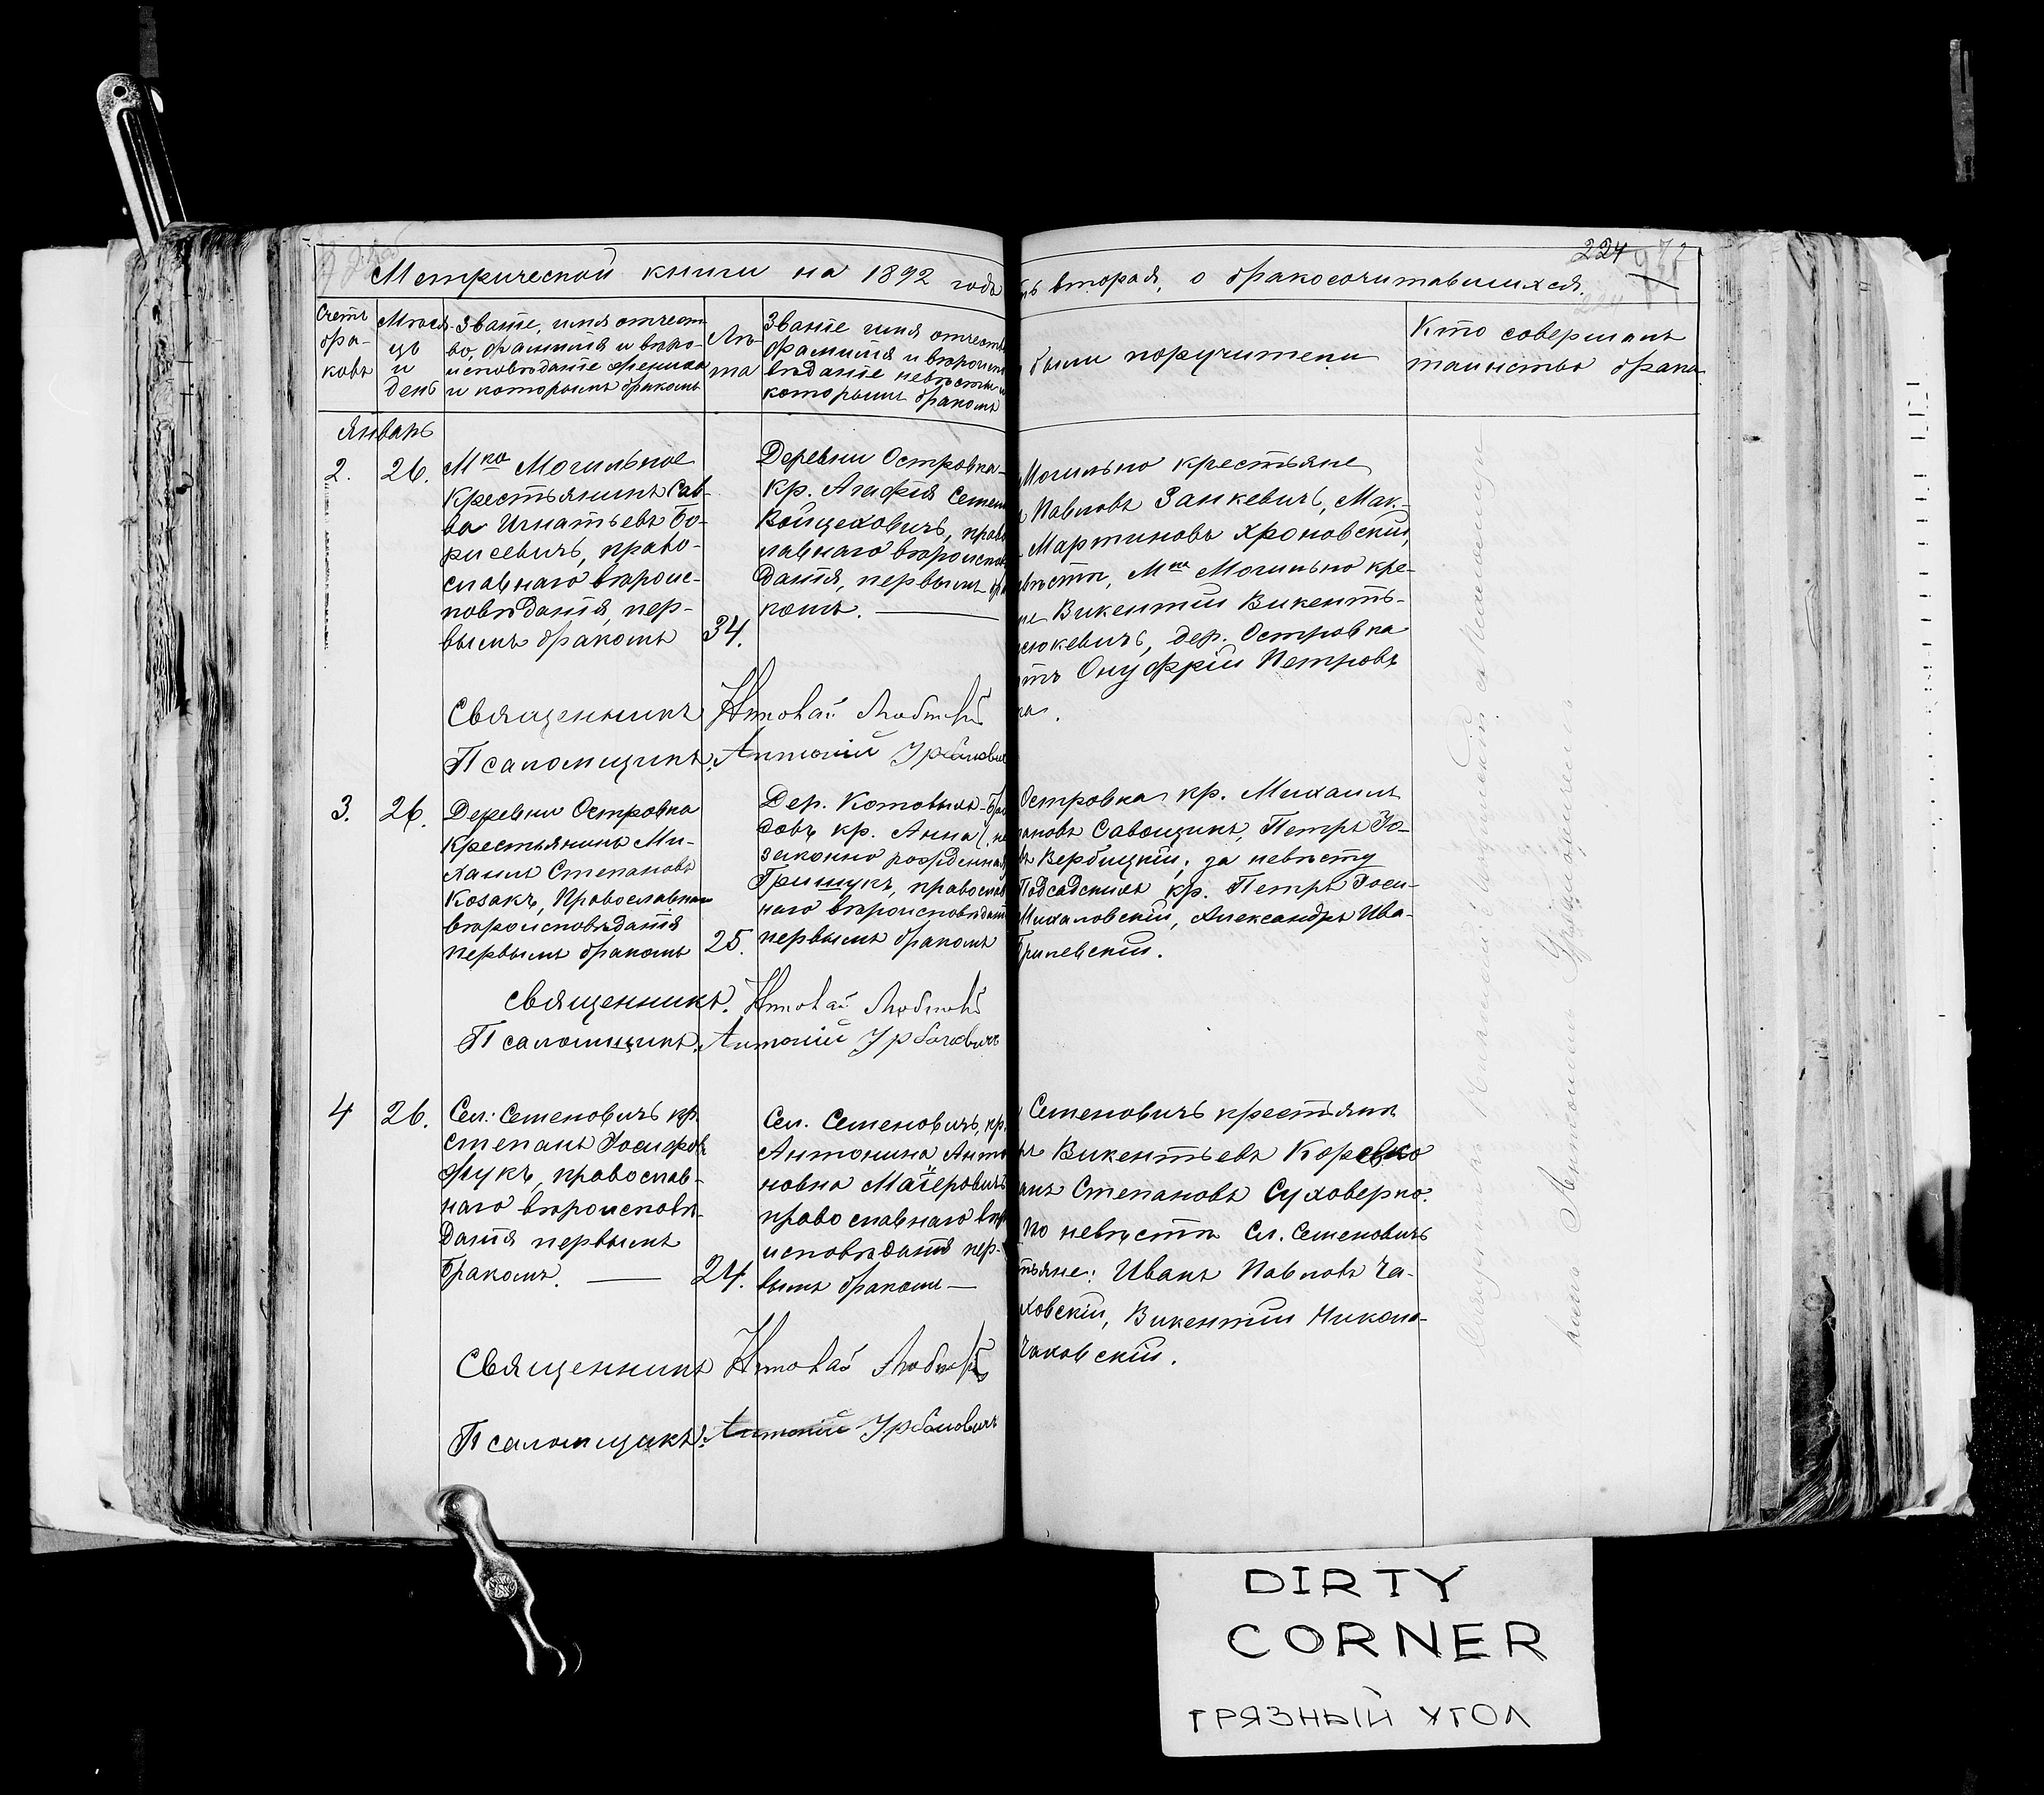 224
Метрической книги на 1892 годъ
вторая, о бракосочитавшихся.
Счетъ бра- ковъ
Мѣся- цъ и день
Званіе, имя отчест-
во, фамилія и вѣро-
исповѣданіе жениха
и которымъ бракомъ
Лѣ-
та
Званіе имя отчеств
фамилія и вѣроиспо
вѣданіе невѣсты и
которымъ бракомъ
были поручители
Кто совершалъ
таинство брака
Январь
2.
26.
Мка Могильное
Крестьянинъ Сав-
ва Игнатьевъ Бо-
рисевичъ, право-
славнаго вѣроис-
повѣданія, пер-
вымъ бракомъ
34.
Деревни Островка
кр. Агафія Семен
Войцеховичъ, прав
лавнаго вѣроиспов
данія, первымъ бра
комъ.
Могильно крестьяне
Павловъ Занкевичъ, Мак-
Мартиновъ Хроновскій,
вѣстѣ, Мка Могильно кре-
не Викентій Викенть-
сюкевичъ, дер. Островка
тъ Онуфрій Петровъ
ка.
Священникъ Николай
Псаломщикъ: Антоній Урбановичъ
3.
26.
Деревни Островка
Крестьянинъ Ми-
хаилъ Степановъ
Козакъ, Православнаго
вѣроисповѣданія
первымъ бракомъ
25.
Дер. Котовыхъ-Бро
довъ кр. Анна (не
законно рожденная
Грищукъ, православ
наго вѣроисповѣдані
первымъ бракомъ
Островка кр. Михаилъ
пановъ Савощикъ, Петръ Іо-
въ Вербицкій; за невѣсту
Подсадскихъ кр. Петръ Іоси-
Михаловскій, Александръ Ива-
Гриневскій.
Священникъ. Николай
Псаломщикъ: Антоній Урбановичъ
4
26.
Сел: Семеновичъ кр.
Степанъ Іосифовъ
Жукъ, православ-
наго вѣроисповѣ-
данія первымъ
бракомъ.
24.
Сел. Семеновичъ, кр.
Антонина Анто
новна Магеровичъ
православнаго вѣр
исповѣданія пер-
вымъ бракомъ
Семеновичъ крестьяне
ръ Викентьевъ Коревко
анъ Степановъ Суховерко.
по невѣстѣ Сл. Семеновичъ
тьяне: Иванъ Павловъ Ча-
ховскій, Викентій Никола-
Чаховскій.
Священникъ Николай
Псаломщикъ: Антоній Урбановичъ
DIRTY
CORNER
ГРЯЗНЫЙ УГОЛ